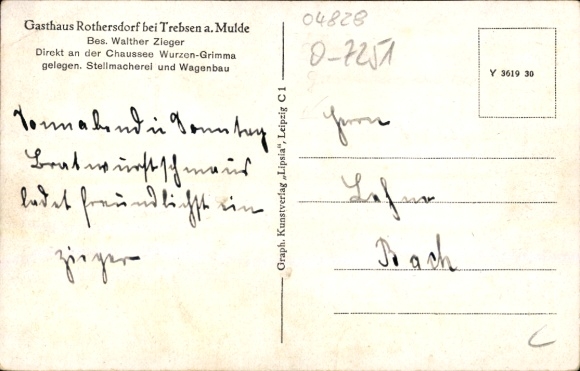 Gasthaus Rothersdorf bei Trebsen a. Mulde
Bes. Walther Zieger
Direkt an der Chaussee Wurzen-Grimma
gelegen. Stellmacherei und Wagenbau
Sonnabend u Sonntag
Bratwurstschmaus
ladet freundlichst ein
Zieger
Graph. Kunstverlag „Lipsia", Leipzig C 1
04828
O-7251
Y 3619 30
Herrn
Lehrer
Bach